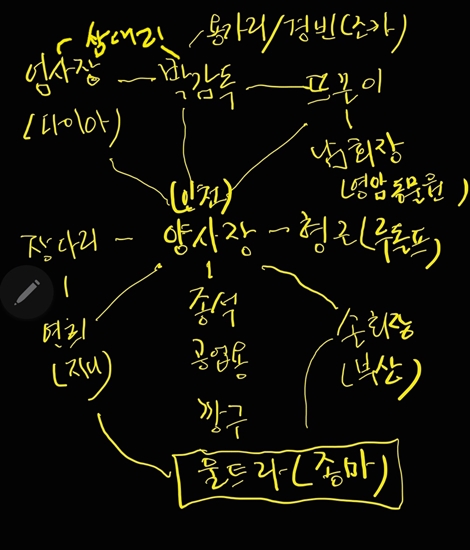 쌈대리
용가리/경빈(조카)
엄사장 박감독 뜨문이
(다이아)
남회장
(영암동물원)
(인천)
장다리 양사장 형근(루돌프)
종석
연희 손회장
공업용
(지대) (부산)
짱구
울트라(종마)